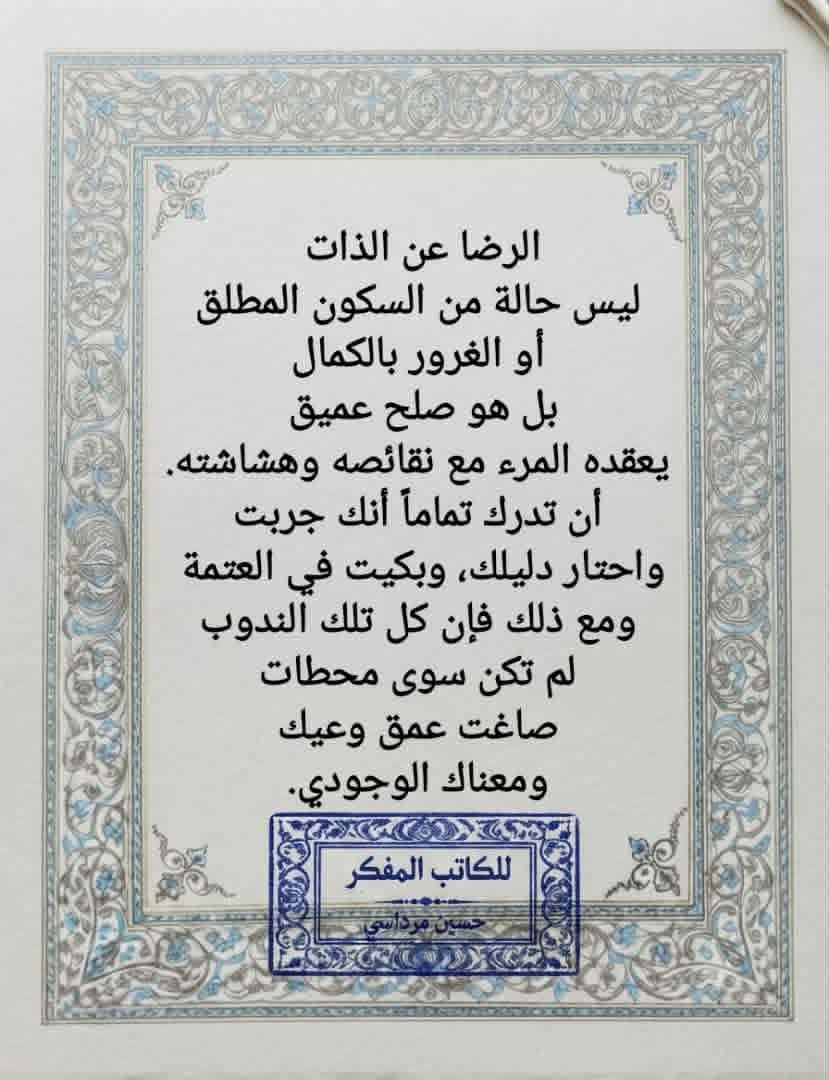 الرضا عن الذات
ليس حالة من السكون المطلق
أو الغرور بالكمال
بل هو صلح عميق
يعقده المرء مع نقائصه وهشاشته.
أن تدرك تماماً أنك جربت
واحتار دليلك، وبكيت في العتمة
ومع ذلك فإن كل تلك الندوب
لم تكن سوى محطات
صاغت عمق وعيك
ومعناك الوجودي.
للكاتب المفكر
حسين مرداسي